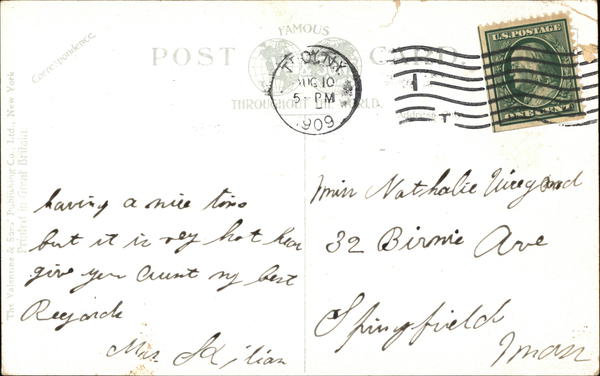 Correspondence.
FAMOUS
POST CARD
THROUGHOUT THE WORLD.
TROY, N.Y.
AUG 10
5 - PM
1909
U.S. POSTAGE
The Valentine & Sons Publishing Co. Ltd., New York
Printed in Great Britain.
having a nice time
but it is vey hot hear
give you Aunt my best
Regards
Mrs. Kilian
Miss Nathalie
32 Birnie Ave
Springfield
Mass